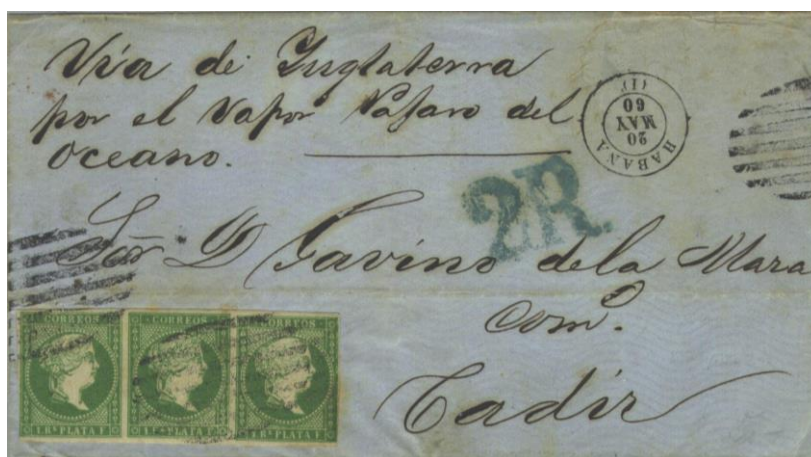 Via de Inglaterra
por el Vapor Pajaro del
Oceano.
HABANA
20
MAY
60
(1)
2R.
Sor D Gavino de la Mara
com.o
Cadiz
CORREOS
1 RL PLATA F.
CORREOS
1 RL PLATA F.
CORREOS
1 RL PLATA F.